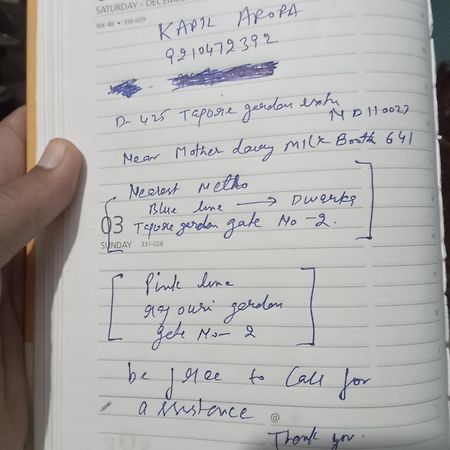 SATURDAY - DECEMBE
WK-48 • 336-029
KAPIL ARORA
9210472392
D- 425 Tagore garden extn
N D 110027
Near Mother dairy milk Booth 641
Nearest Metro
Blue line → Dwarka
03
Tagore garden gate No - 2.
SUNDAY 337-028
Pink line
Rajouri garden
gate No- 2
be free to Call for
assistence
@
Thank you.